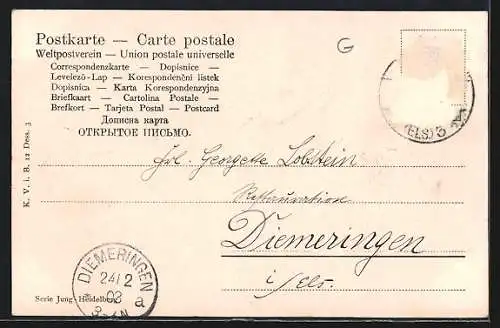 Postkarte — Carte postale
Weltpostverein — Union postale universelle
Correspondenzkarte — Dopisnice —
Levelezö-Lap — Korespondenční listek
Dopisnica — Karta Korespondenzyjna
Briefkaart — Cartolina Postale —
Brefkort — Tarjeta Postal — Postcard
Дописна карта
ОТКРЫТОЕ ПИСЬМО.
G
(ELS) 3
Frl. Georgette Lobstein
Restauration
Diemeringen
i/Els.
K. V. i. B. 12 Dess. 3
DIEMERINGEN
24 12
02 a
Serie Jung-Heidelberg